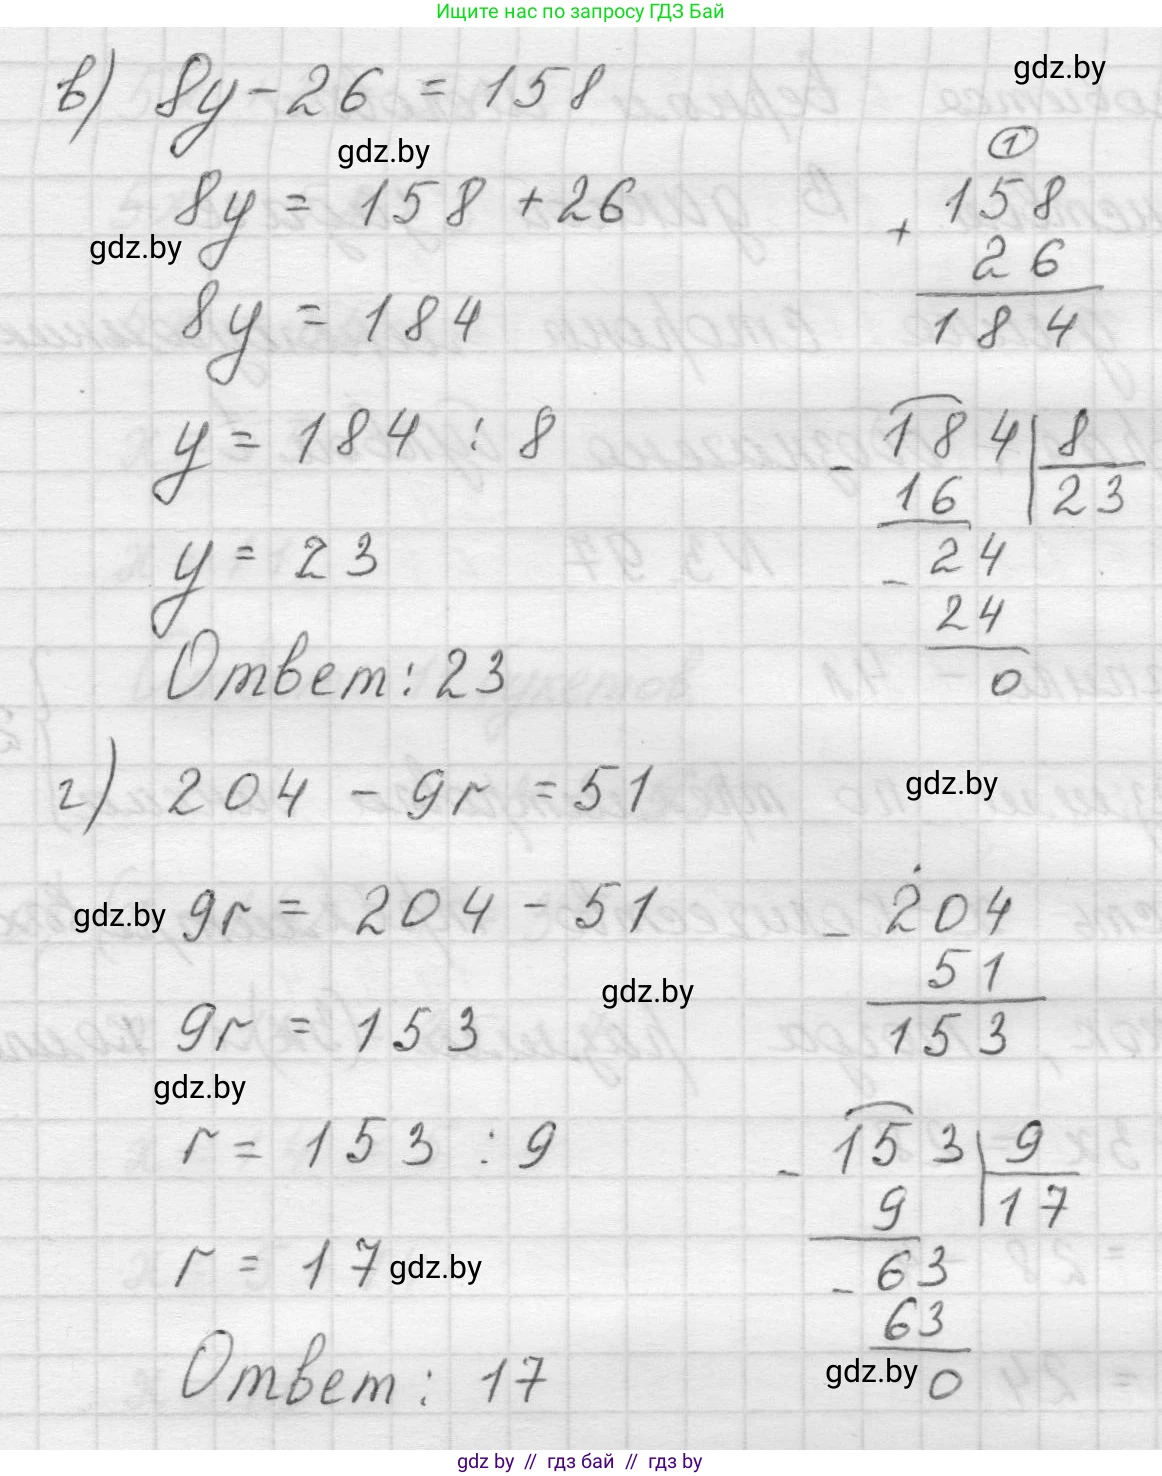 Ищите нас по запросу ГДЗ Бай
в) 8y - 26 = 158
gdz.by
gdz.by
8y = 158 + 26
gdz.by
8y = 184
y = 184 : 8
y = 23
Ответ: 23
1
+ 158
26
184
- 184 | 8
16 | 23
- 24
24
0
г) 204 - 9r = 51
gdz.by
gdz.by
9r = 204 - 51
gdz.by
9r = 153
gdz.by
r = 153 : 9
r = 17
gdz.by
Ответ: 17
- 204
51
153
- 153 | 9
9 | 17
- 63
63
gdz.by
0
gdz by // гдз бай // гдз by